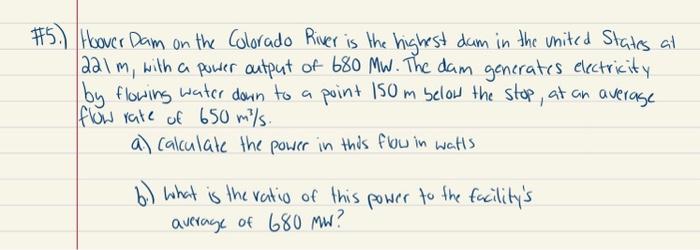 #5.) Hoover Dam on the Colorado River is the highest dam in the united States at
221 m, with a power output of 680 MW. The dam generates electricity
by flowing water down to a point 150 m below the stop, at an average
flow rate of 650 m³/s.
a) Calculate the power in this flow in watts
b.) What is the ratio of this power to the facility's
average of 680 MW?